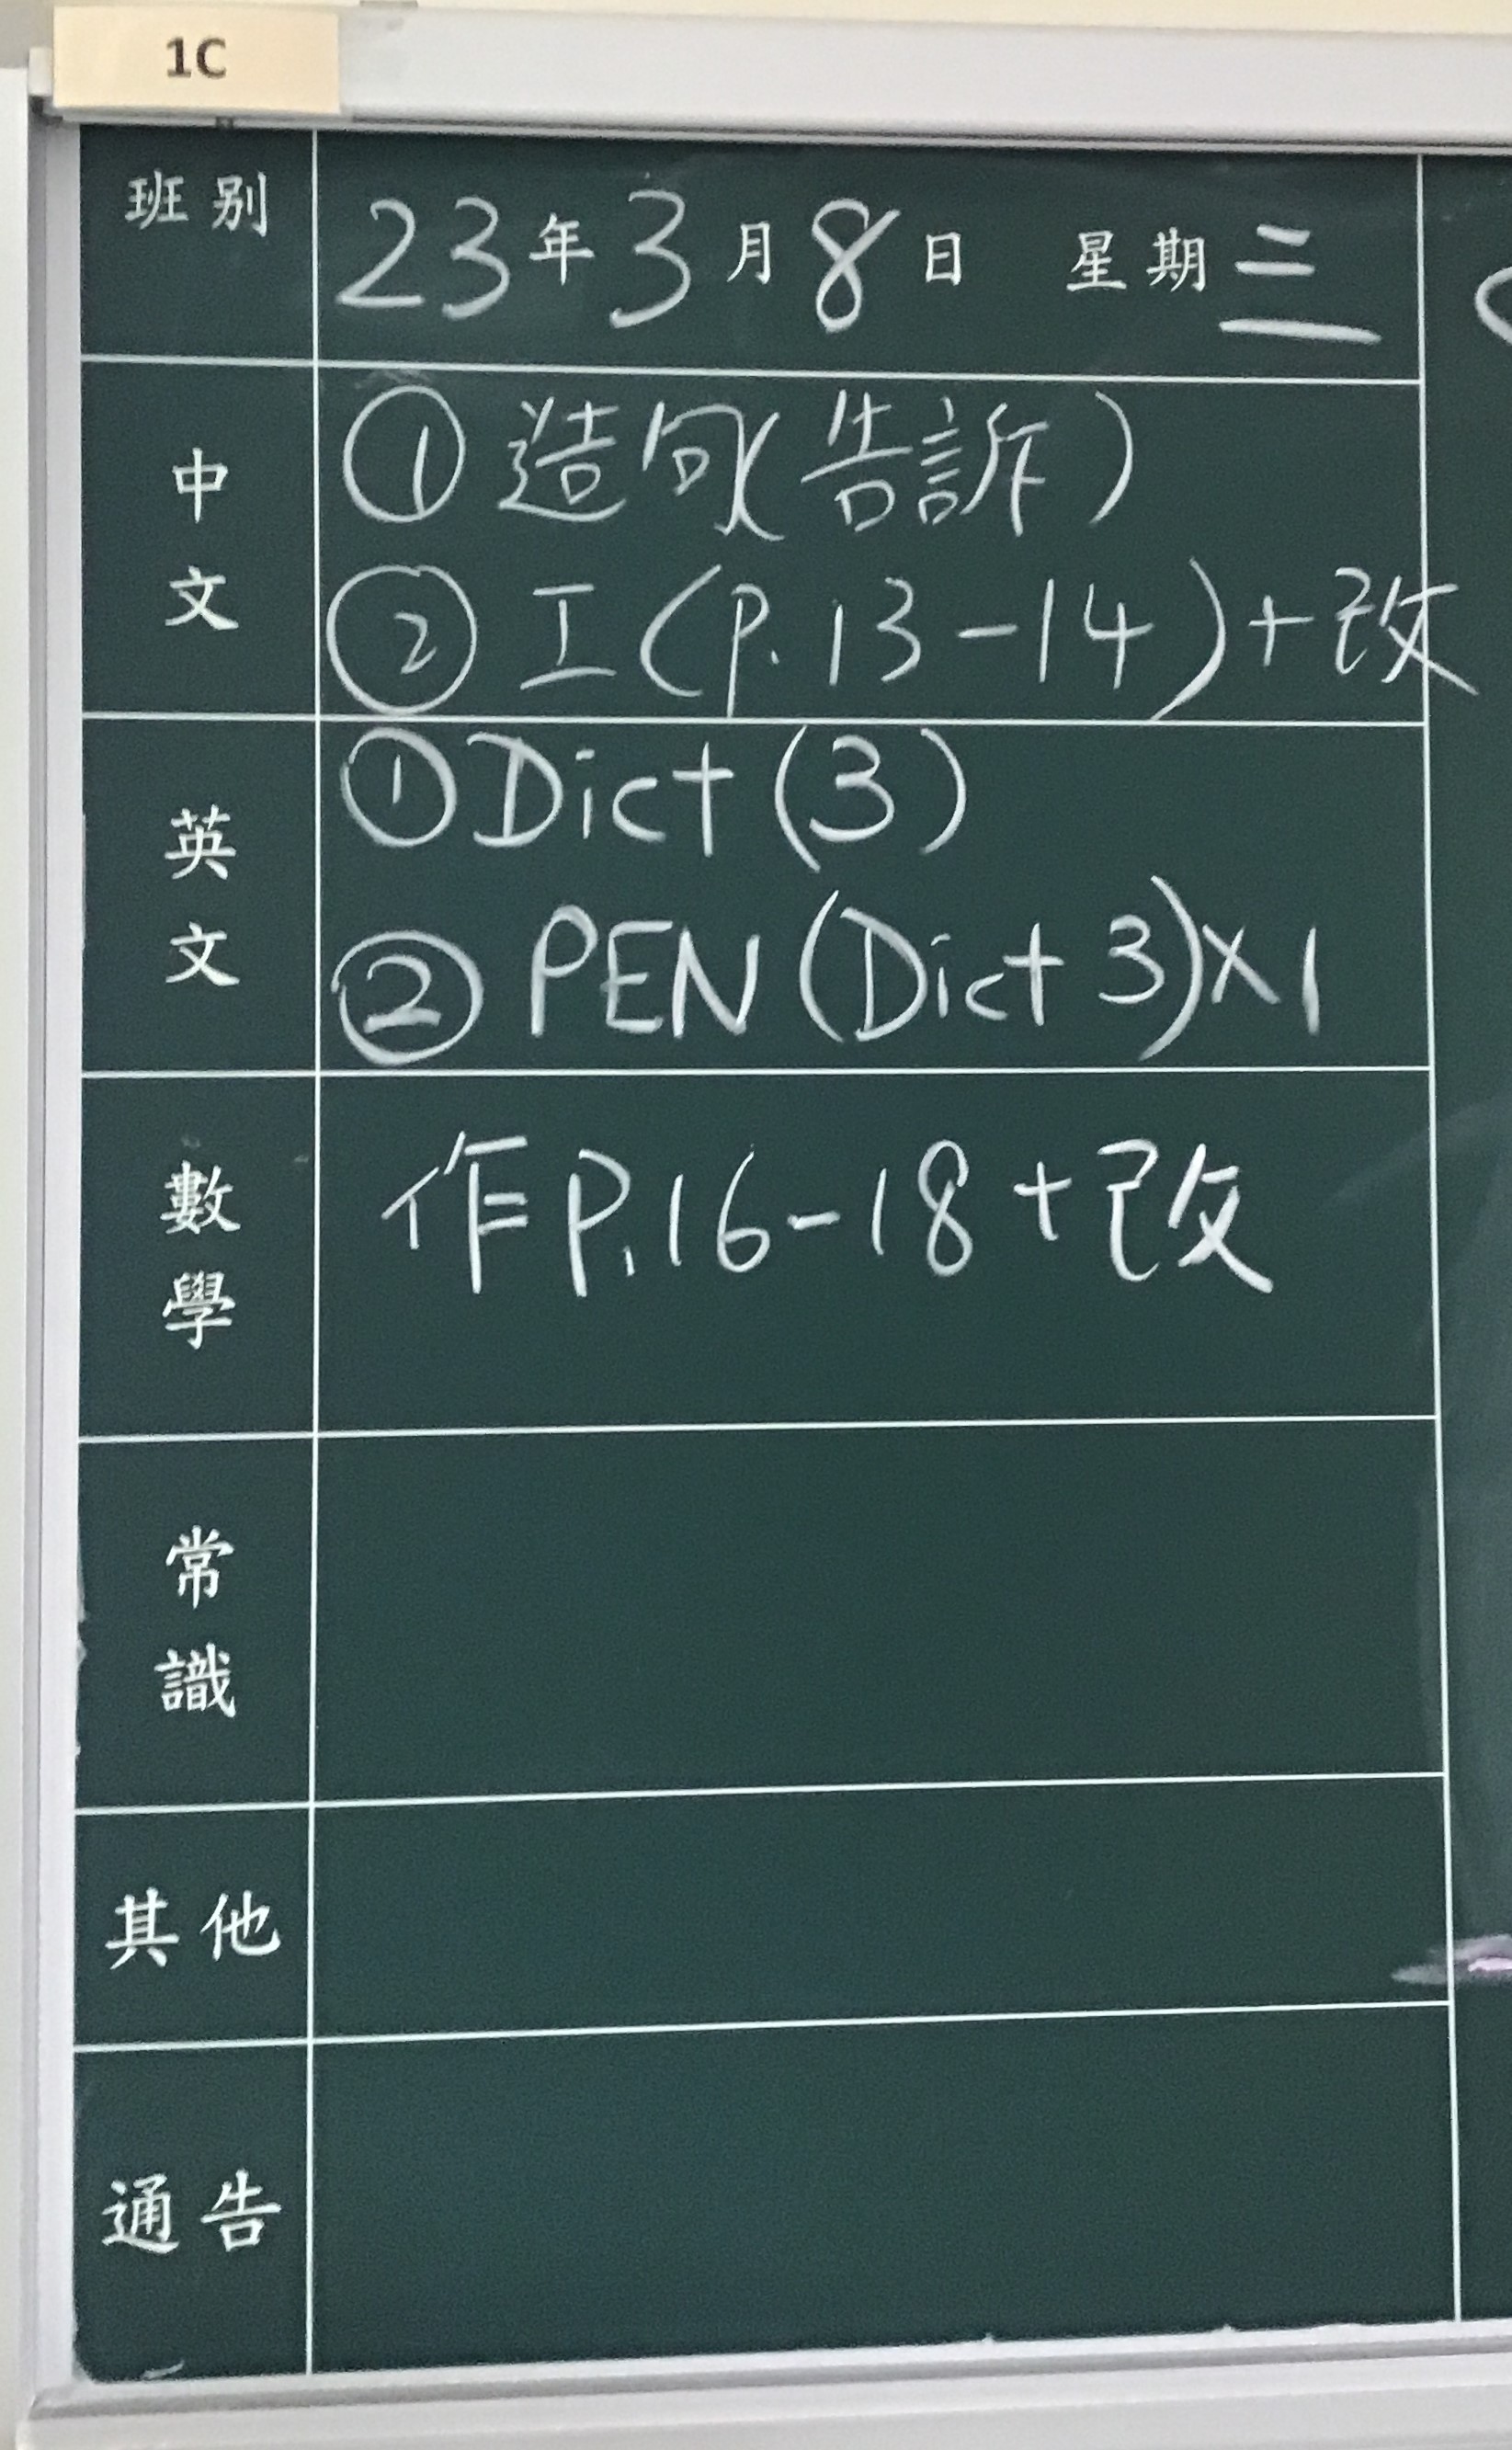 1C
班別 23年3月8日 星期三
中文
①造句(告訴)
②工(P.13-14)+改
英文
①Dict (3)
②PEN (Dict 3)×1
數學
作P.16-18+改
常識
其他
通告